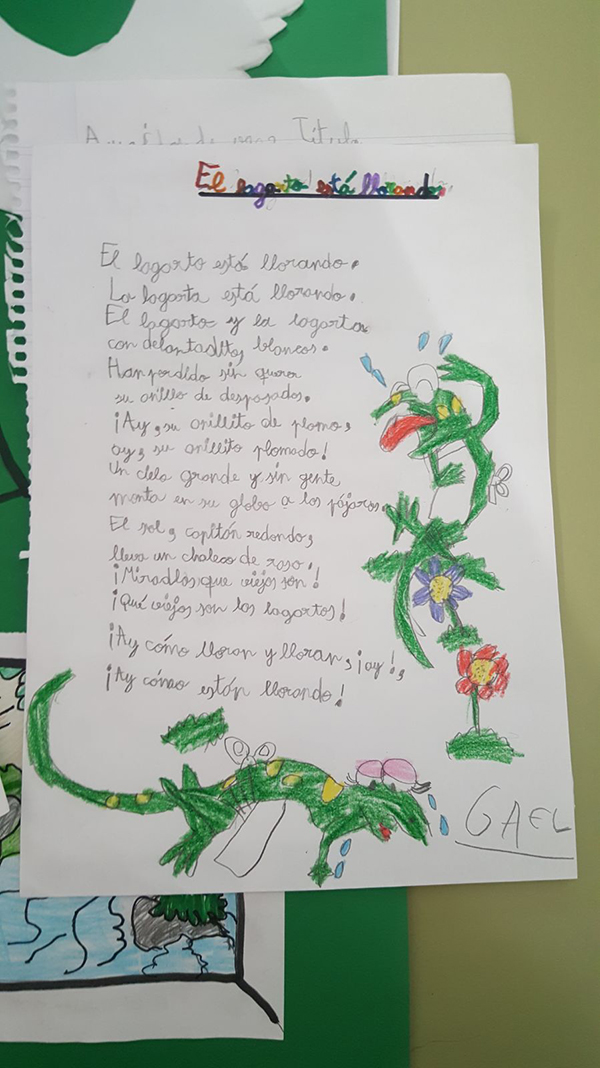 El lagarto está llorando.
El lagarto está llorando.
La lagarta está llorando.
El lagarto y la lagarta
con delantalitos blancos.
Han perdido sin querer
su anillo de desposados.
¡Ay, su anillito de plomo,
ay, su anillito plomado!
Un cielo grande y sin gente
monta en su globo a los pájaros.
El sol, capitán redondo,
lleva un chaleco de raso.
¡Miradlos que viejos son!
¡Qué viejos son los lagartos!
¡Ay cómo lloran y lloran, ¡ay!,
¡Ay cómo están llorando!
GAEL